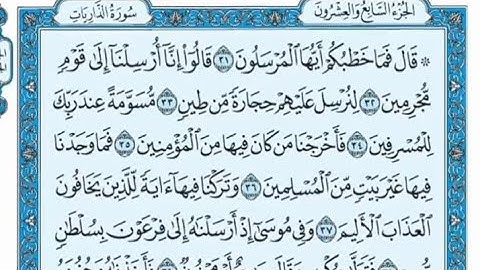 سُورَةُ الذَّارِيَاتِ
الجُزْءُ السَّابِعُ وَالعِشْرُونَ
۞ قَالَ فَمَا خَطْبُكُمْ أَيُّهَا ٱلْمُرْسَلُونَ ٣١ قَالُوٓاْ إِنَّآ أُرْسِلْنَآ إِلَىٰ قَوْمٍ
مُّجْرِمِينَ ٣٢ لِنُرْسِلَ عَلَيْهِمْ حِجَارَةً مِّن طِينٍ ٣٣ مُّسَوَّمَةً عِندَ رَبِّكَ
لِلْمُسْرِفِينَ ٣٤ فَأَخْرَجْنَا مَن كَانَ فِيهَا مِنَ ٱلْمُؤْمِنِينَ ٣٥ فَمَا وَجَدْنَا
فِيهَا غَيْرَ بَيْتٍ مِّنَ ٱلْمُسْلِمِينَ ٣٦ وَتَرَكْنَا فِيهَآ ءَايَةً لِّلَّذِينَ يَخَافُونَ
ٱلْعَذَابَ ٱلْأَلِيمَ ٣٧ وَفِي مُوسَىٰٓ إِذْ أَرْسَلْنَٰهُ إِلَىٰ فِرْعَوْنَ بِسُلْطَٰنٍ